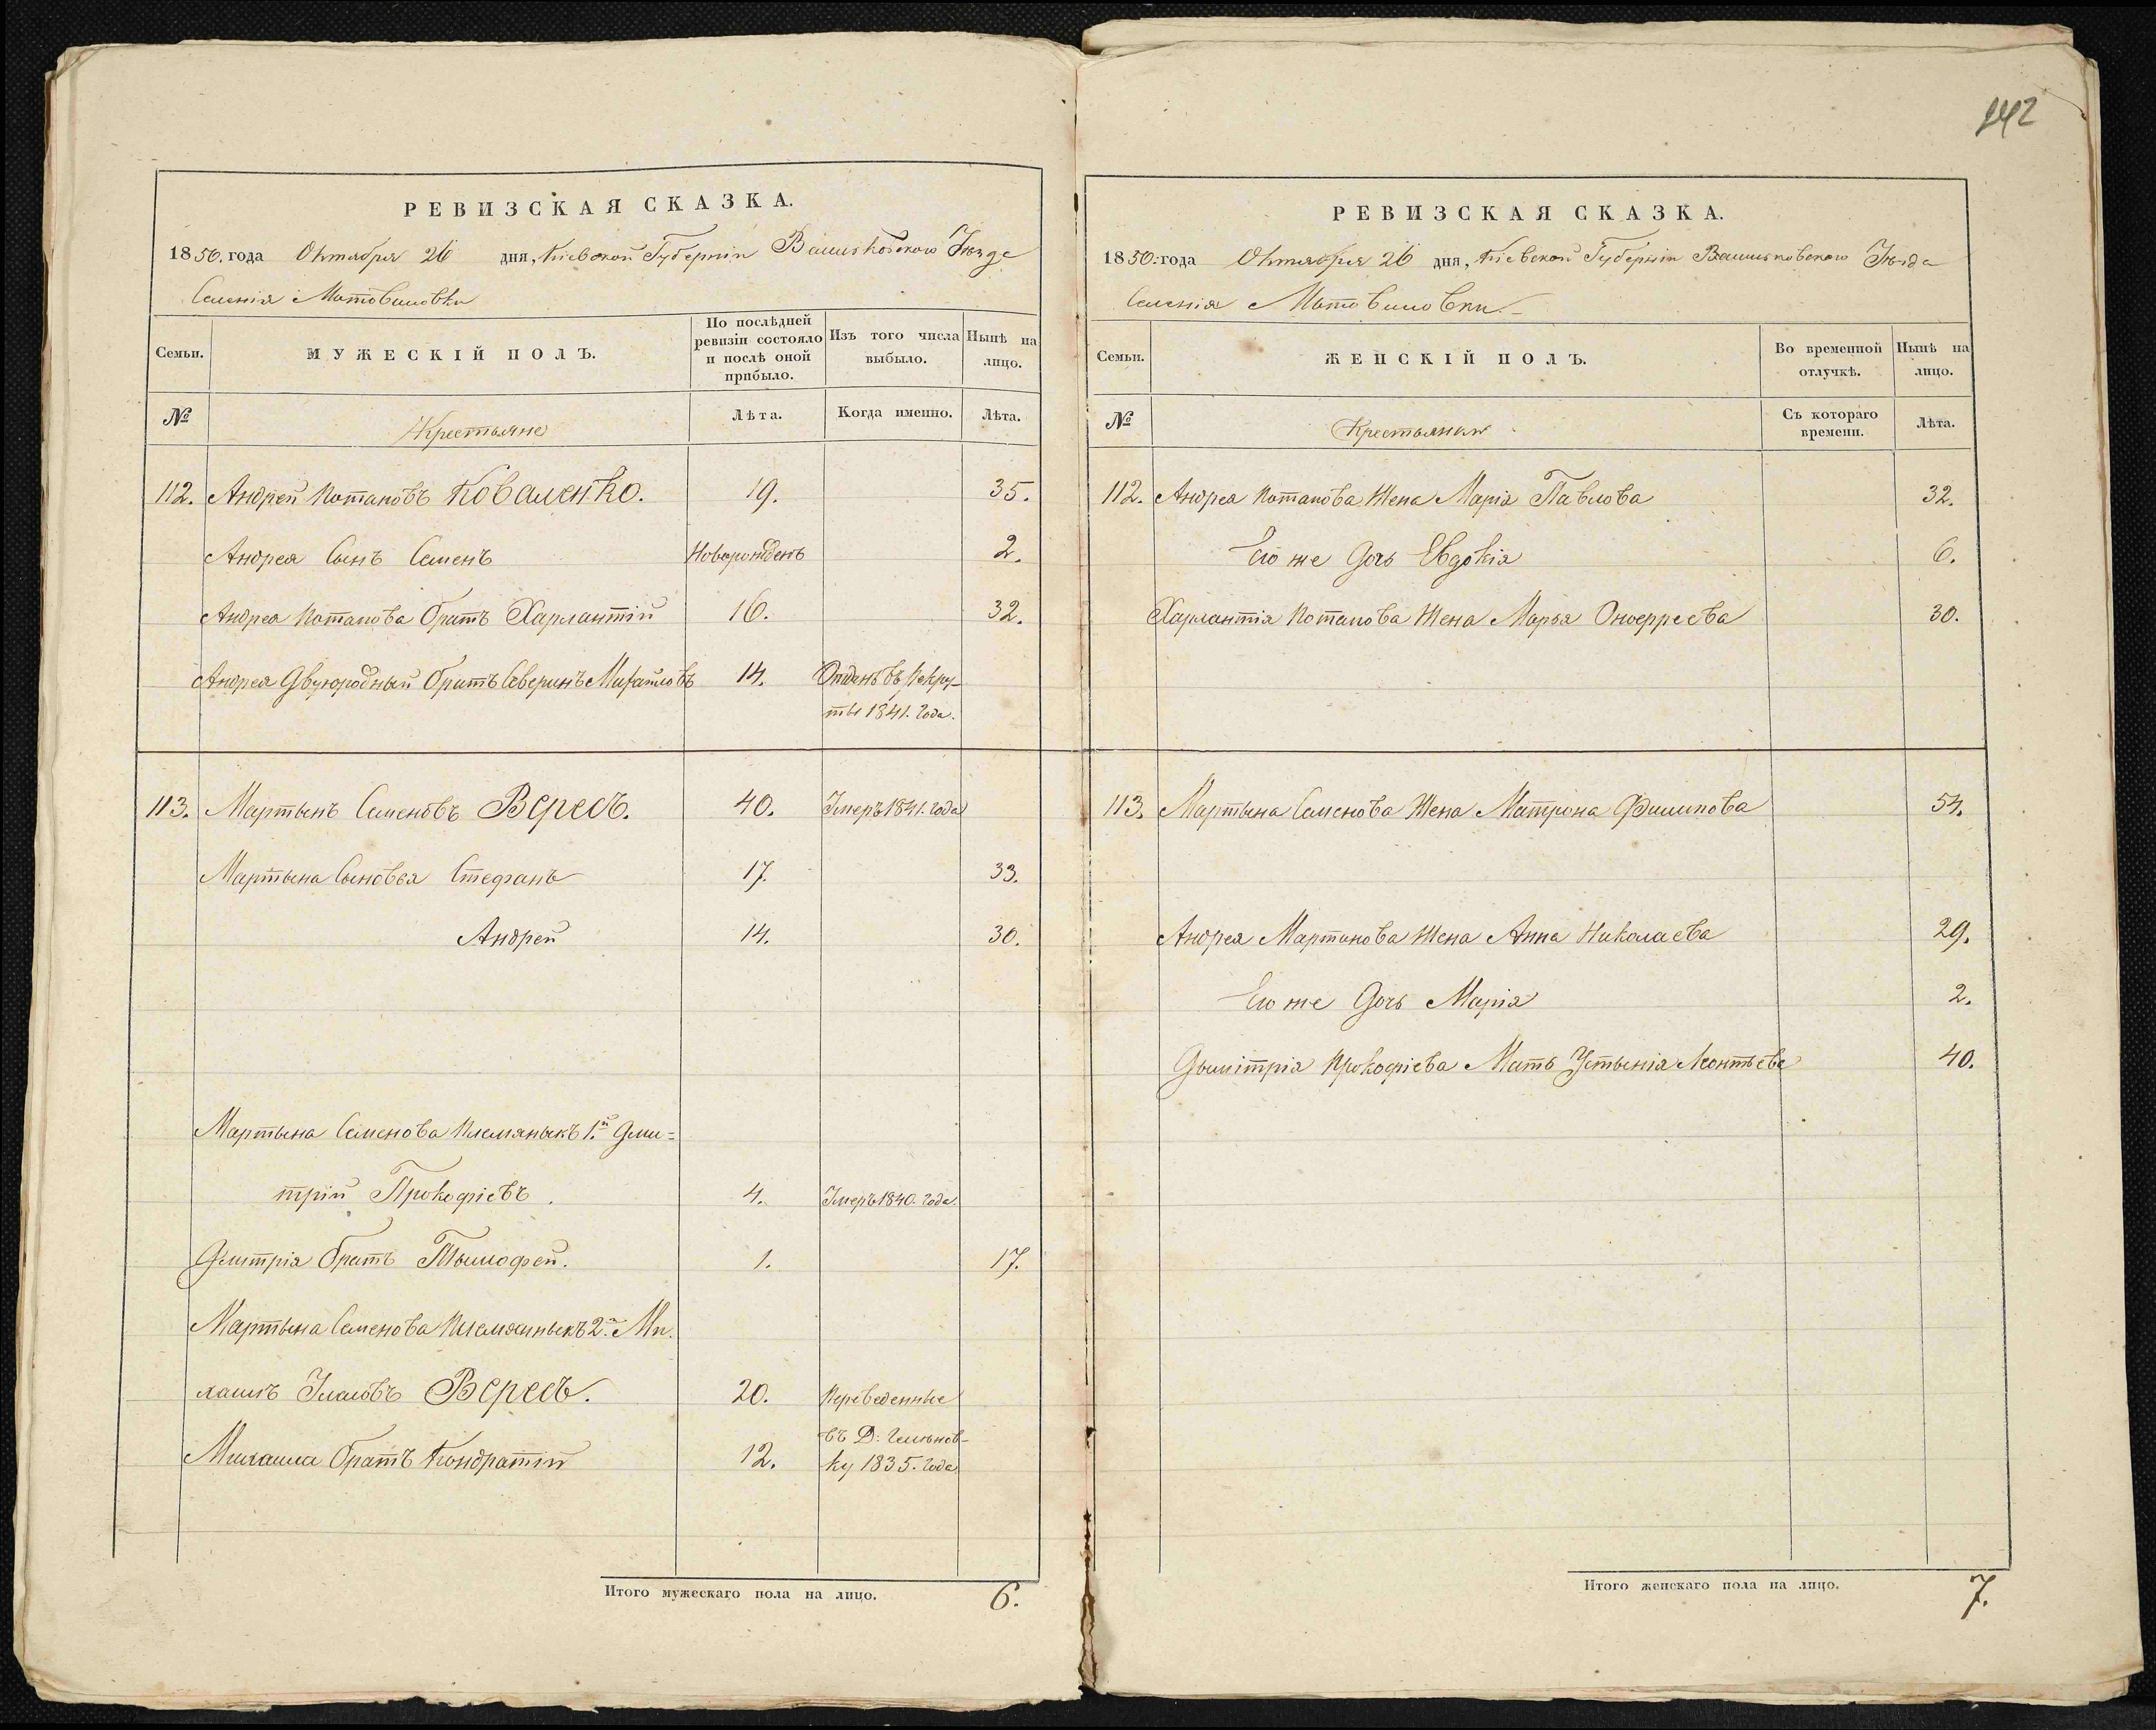 142
РЕВИЗСКАЯ СКАЗКА.
1850. года Октября 26 дня, Кіевской Губерніи Васильковскаго Уѣзда
Селенія Мотовиловки
Семьи.
МУЖЕСКІЙ ПОЛЪ.
По послѣдней
ревизіи состояло
и послѣ оной
прибыло.
Изъ того числа
выбыло.
Нынѣ на
лицо.
№
Крестьяне
Лѣта.
Когда именно.
Лѣта.
112. Андрей Потаповъ Коваленко. 19. 35.
Андрея Сынъ Семенъ Новорожденъ 2.
Андрея Потапова братъ Харлантій 16. 32.
Андрея Двуюродный братъ Северинъ Михайловъ 14. Отданъ въ Рекру-
ты 1841. года.
113. Мартынъ Семеновъ Вересъ. 40. Умеръ 1841. года
Мартына Сыновья Стефанъ 17. 33.
Андрей 14. 30.
Мартына Семенова племяныкъ 1.й Дми=
трій Прокофіевъ. 4. Умеръ 1840. года.
Дмитрія братъ Тымофей. 1. 17.
Мартына Семенова племянныкъ 2.й Ми.
хаилъ Вересъ. 20. Переведенные
въ Д:
Михаила братъ Кондратій 12. ку 1835. года
Итого мужескаго пола на лицо. 6.
РЕВИЗСКАЯ СКАЗКА.
1850. года Октября 26 дня, Кіевской Губерніи Васильковскаго Уѣзда
Селенія Мотовиловки.
Семьи.
ЖЕНСКІЙ ПОЛЪ.
Во временной
отлучкѣ.
Нынѣ на
лицо.
№
Крестьянки
Съ котораго
времени.
Лѣта.
112. Андрея Потапова Жена Марія Павлова 32.
Его же Дочь Евдокія 6.
Харлантія Потапова Жена Марья 30.
113. Мартына Семенова Жена Матрона Филипова 54.
Андрея Мартинова Жена Анна Николаева 29.
Его же Дочь Марія 2.
Дымітрія Прокофіева Мать Устынія Леонтьева 40.
Итого женскаго пола на лицо. 7.